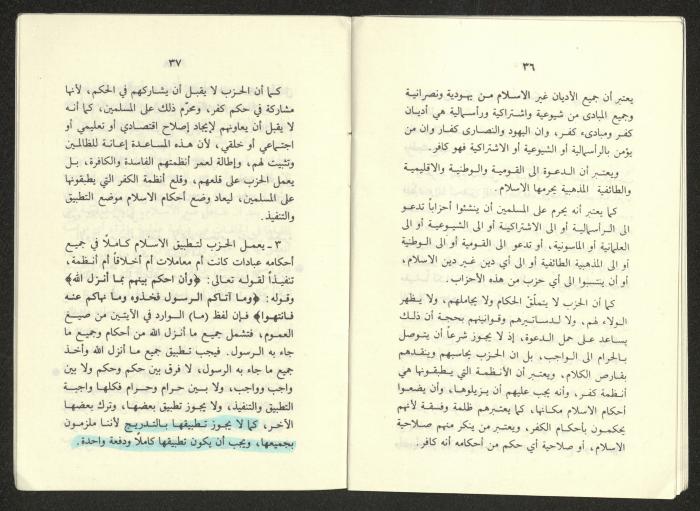 ٣٦
يعتبر أن جميع الأديان غير الاسلام من يهودية ونصرانية
وجميع المبادى من شيوعية واشتراكية ورأسمالية هي أديان
كفر ومبادىء كفر، وان اليهود والنصارى كفار وان من
يؤمن بالرأسمالية أو الشيوعية أو الاشتراكية فهو كافر.
ويعتبر أن الدعوة الى القومية والوطنية والاقليمية
والطائفية المذهبية يحرمها الاسلام.
كما يعتبر أنه يحرم على المسلمين أن ينشئوا أحزاباً تدعو
الى الرأسمالية أو الى الاشتراكية أو الى الشيوعية أو الى
العلمانية أو الماسونية، أو تدعو الى القومية أو الى الوطنية
أو الى المذهبية الطائفية أو الى أي دين غير دين الاسلام،
أو أن ينتسبوا الى أي حزب من هذه الأحزاب.
كما أن الحزب لا يتملّق الحكام ولا يجاملهم، ولا يظهر
الولاء لهم، ولا لدساتيرهم وقوانينهم بحجة أن ذلك
يساعد على حمل الدعوة، إذ لا يجوز شرعاً أن يتوصل
بالحرام الى الواجب، بل ان الحزب يحاسبهم وينقدهم
بقارص الكلام، ويعتبر أن الأنظمة التي يطبقونها هي
أنظمة كفر، وأنه يجب عليهم أن يزيلوها، وأن يضعوا
أحكام الاسلام مكانها، كما يعتبرهم ظلمة وفسقة لأنهم
يحكمون بأحكام الكفر، ويعتبر من ينكر منهم صلاحية
الاسلام، أو صلاحية أي حكم من أحكامه أنه كافر.
٣٧
كما أن الحزب لا يقبل أن يشاركهم في الحكم، لأنها
مشاركة في حكم كفر، ومحرّم ذلك على المسلمين، كما أنه
لا يقبل أن يعاونهم لإيجاد إصلاح اقتصادي أو تعليمي أو
اجتماعي أو خلقي، لأن هذه المساعدة إعانة للظالمين
وتثبيت لهم، وإطالة لعمر أنظمتهم الفاسدة والكافرة، بل
يعمل الحزب على قلعهم، وقلع أنظمة الكفر التي يطبقونها
على المسلمين، ليعاد وضع أحكام الاسلام موضع التطبيق
والتنفيذ.
٣ - يعمل الحزب لتطبيق الاسلام كاملاً في جميع
أحكامه عبادات كانت أم معاملات أم أخلاقاً أم أنظمة،
تنفيذاً لقوله تعالى: ﴿وأن احكم بينهم بما أنزل الله﴾
وقوله: ﴿وما آتاكم الرسول فخذوه وما نهاكم عنه
فانتهوا﴾ فإن لفظ (ما) الوارد في الآيتين من صيغ
العموم، فتشمل جميع ما أنزل الله من أحكام وجميع ما
جاء به الرسول. فيجب تطبيق جميع ما أنزل الله وأخذ
جميع ما جاء به الرسول، لا فرق بين حكم وحكم ولا بين
واجب وواجب، ولا بين حرام وحرام فكلها واجبة
التطبيق والتنفيذ، ولا يجوز تطبيق بعضها، وترك بعضها
الآخر، كما لا يجوز تطبيقها بالتدريج لأننا ملزمون
بجميعها، ويجب أن يكون تطبيقها كاملاً ودفعة واحدة.